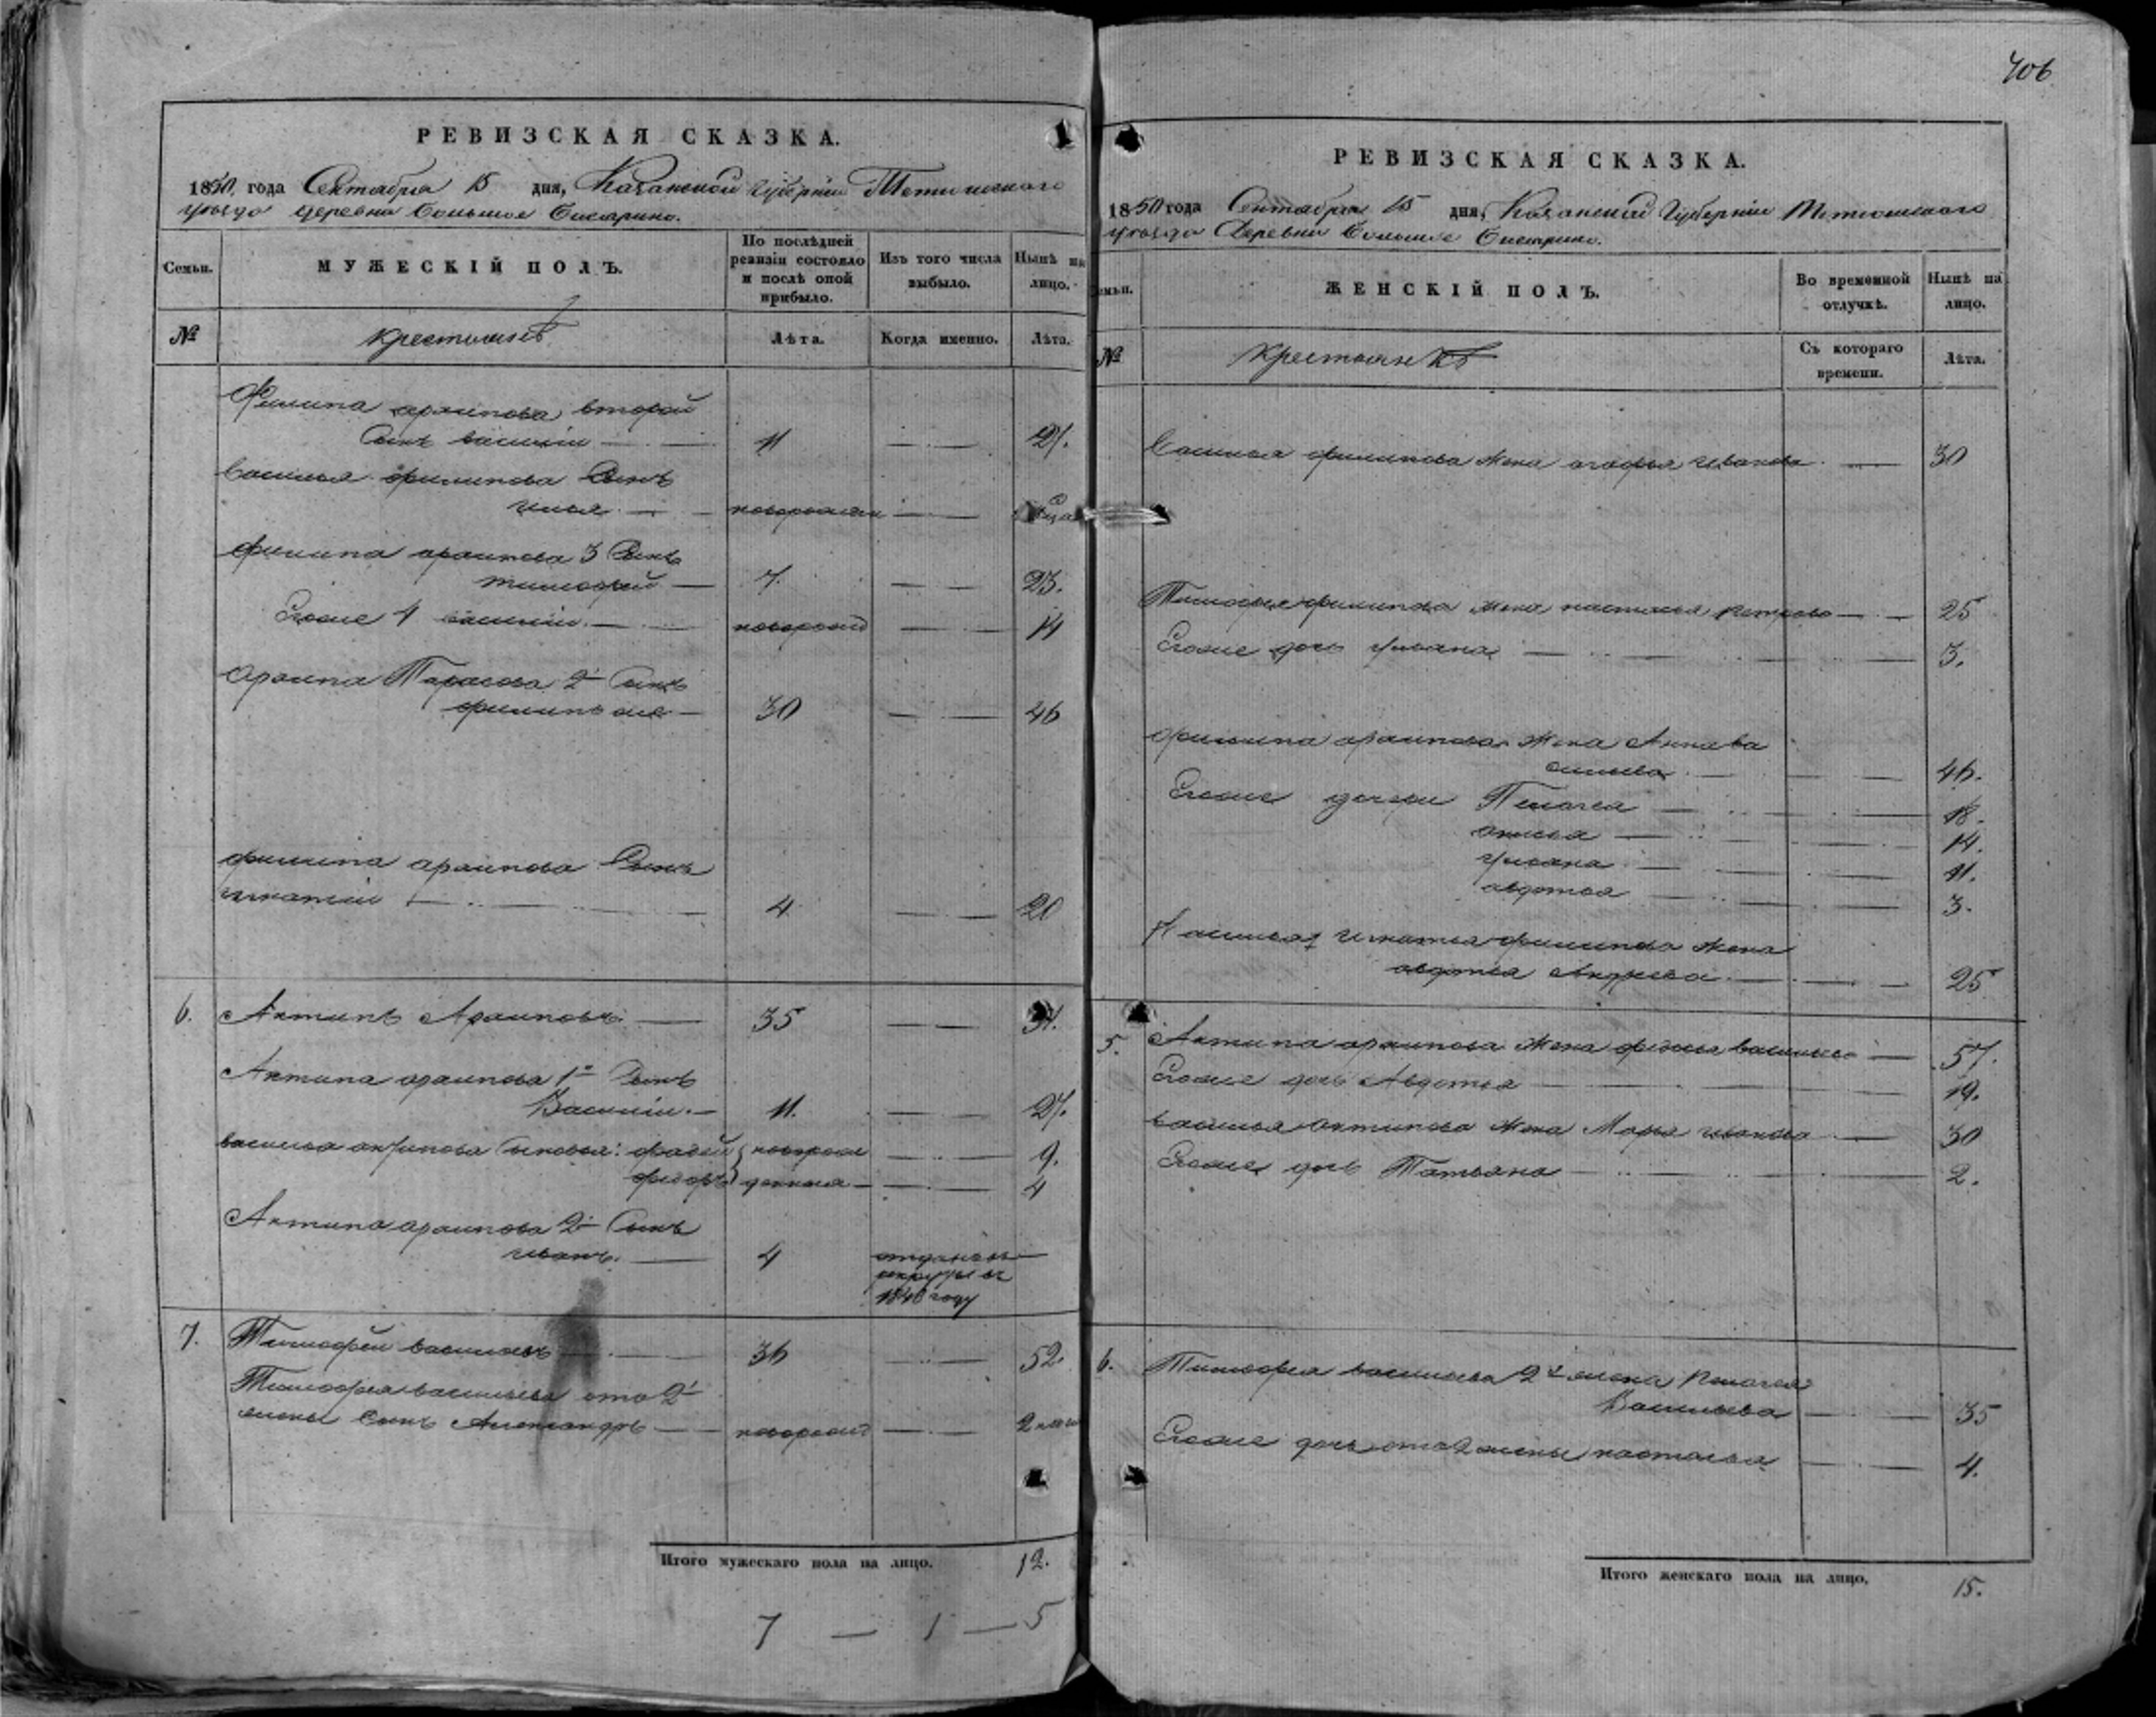 406
РЕВИЗСКАЯ СКАЗКА.
1850 года Сентября 15 дня, Казанской губерніи Тетюшскаго
уезда деревни Большое
Семьи.
МУЖЕСКІЙ ПОЛЪ.
По послѣдней ревизіи состояло и послѣ оной прибыло.
Изъ того числа выбыло.
Нынѣ на лицо.
№
крестьянъ
Лѣта.
Когда именно.
Лѣта.
Филипа архипова второй
Сынъ василіи 11 27.
Василья филипова Сынъ
илья новорожден
филипа архипова 3 Сынъ
тимофей 7. 23.
Егоже 4 василіи новорожд 14
Архипа Тарасова 2й Сынъ
филипъ же 30 46
филипа архипова Сынъ
игнатіи 4 20
6. Антипъ Архиповъ 35 51.
Антипа архипова 1й Сынъ
Василіи 11. 27.
василья антипова Сыновья: фадей новорож 9.
федоръ денныя 4
Антипа архипова 2й Сынъ
иванъ. 4 отданъ въ
рекруты въ
1846 году
7. Тимофеи васильевъ 36 52.
Тимофея васильева ото 2й
жены Сынъ Александръ новорожд 2
Итого мужескаго пола на лицо. 12.
7 — 1 — 5
РЕВИЗСКАЯ СКАЗКА.
1850 года Сентября 15 дня, Казанской Губерніи Тетюшскаго
уезда Деревни Большое
Семьи.
ЖЕНСКІЙ ПОЛЪ.
Во временной отлучкѣ.
Нынѣ на лицо.
№
крестьянкъ
Съ котораго времени.
Лѣта.
Василья филипова жена агафья иванова 30
Тимофея филипова жена настасья петрова 25
Егоже дочь ульяна 3.
филипа архипова жена Анна ва
сильева 46.
Егоже дочери Пелагея 18.
анисья 14.
ульяна 11.
авдотья 3.
игнатья филипова жена
авдотья Андреева 25
5. Антипа архипова жена федосья васильева 57.
Егоже дочь Авдотья 19.
василья антипова жена Марья иванова 30
Егоже дочь Татьяна 2.
6. Тимофея васильева 2я жена Пелагея
Васильева 35
Егоже дочь ото 2 жены настасья 4.
Итого женскаго пола на лицо, 15.